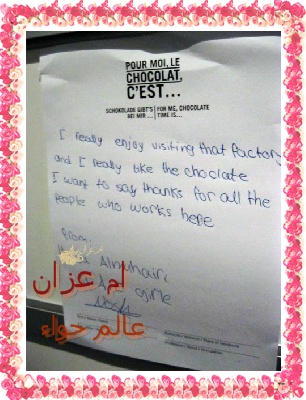 POUR MOI, LE
CHOCOLAT,
C'EST...
SCHOKOLADE GIBT'S
BEI MIR ...
FOR ME, CHOCOLATE
TIME IS...
I really enjoy visiting that factory
and I really like the choclate
I want to say thanks for all the
people who works here
From:
ام عزان
عالم حواء